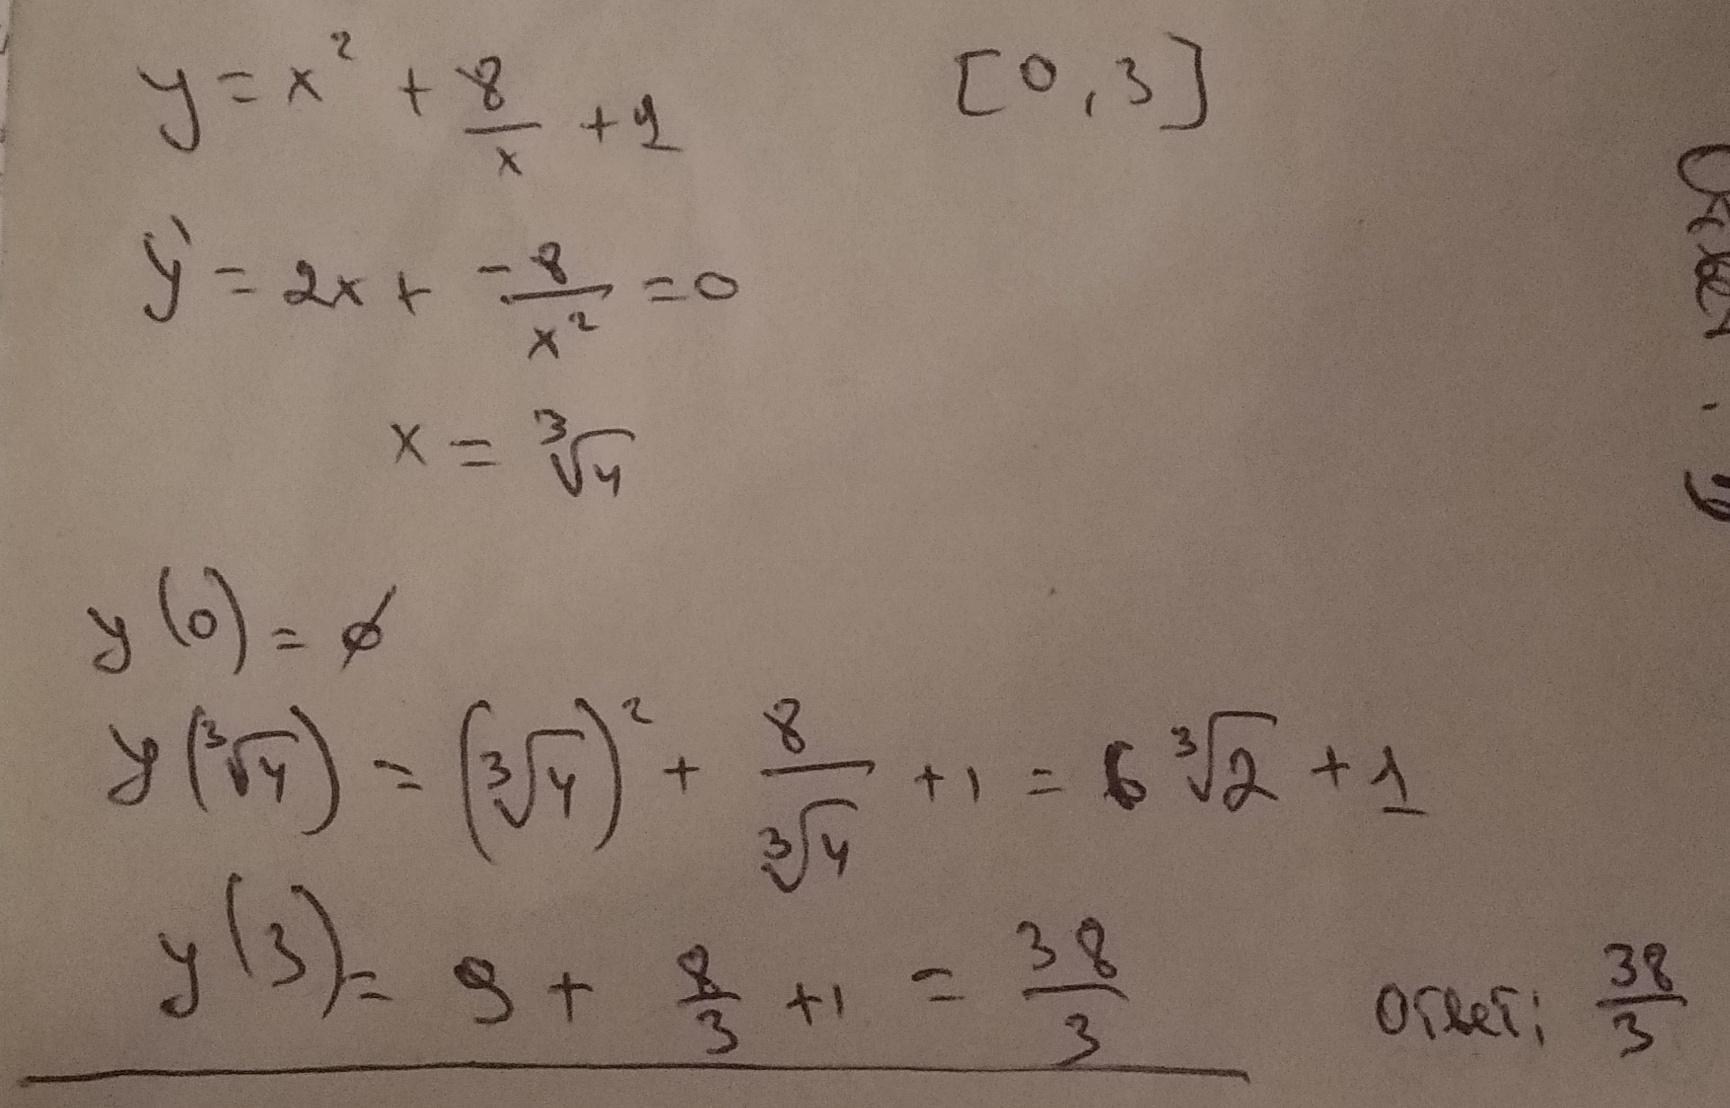 y = x² + 8/x + 1 [0,3]
y' = 2x + -8/x² = 0
x = ∛4
y(0) = ∅
y(∛4) = (∛4)² + 8/∛4 + 1 = 6∛2 + 1
y(3) = 9 + 8/3 + 1 = 38/3 Ответ: 38/3